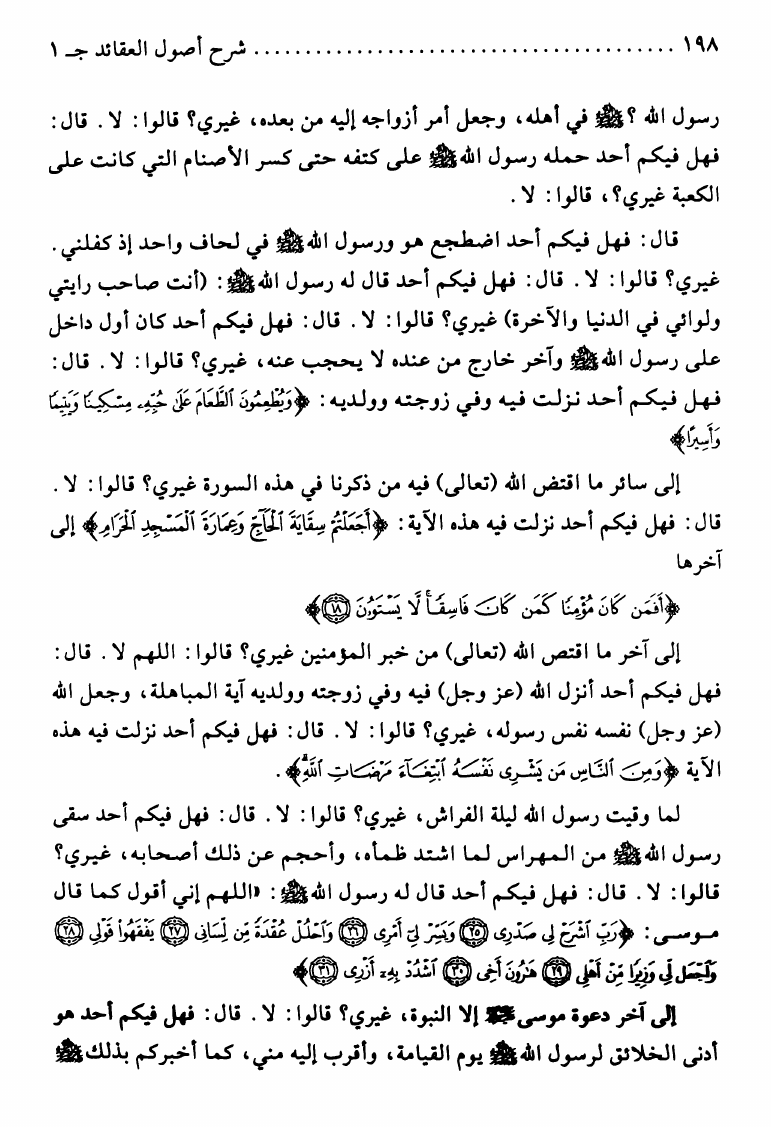 ١٩٨ ........................................ شرح أصول العقائد جـ ١
رسول الله ؟ ﷺ في أهله، وجعل أمر أزواجه إليه من بعده، غيري؟ قالوا: لا. قال:
فهل فيكم أحد حمله رسول الله ﷺ على كتفه حتى كسر الأصنام التي كانت على
الكعبة غيري؟، قالوا: لا.
قال: فهل فيكم أحد اضطجع هو ورسول الله ﷺ في لحاف واحد إذ كفلني.
غيري؟ قالوا: لا. قال: فهل فيكم أحد قال له رسول الله ﷺ: (أنت صاحب رايتي
ولوائي في الدنيا والآخرة) غيري؟ قالوا: لا. قال: فهل فيكم أحد كان أول داخل
على رسول الله ﷺ وآخر خارج من عنده لا يحجب عنه، غيري؟ قالوا: لا. قال:
فهل فيكم أحد نزلت فيه وفي زوجته وولديه: ﴿وَيُطْعِمُونَ ٱلطَّعَامَ عَلَىٰ حُبِّهِۦ مِسْكِينًا وَيَتِيمًا
وَأَسِيرًا﴾
إلى سائر ما اقتض الله (تعالى) فيه من ذكرنا في هذه السورة غيري؟ قالوا: لا.
قال: فهل فيكم أحد نزلت فيه هذه الآية: ﴿أَجَعَلْتُمْ سِقَايَةَ ٱلْحَآجِّ وَعِمَارَةَ ٱلْمَسْجِدِ ٱلْحَرَامِ﴾ إلى
آخرها
﴿أَفَمَن كَانَ مُؤْمِنًا كَمَن كَانَ فَاسِقًا ۚ لَّا يَسْتَوُۥنَ ١٨﴾
إلى آخر ما اقتص الله (تعالى) من خبر المؤمنين غيري؟ قالوا: اللهم لا. قال:
فهل فيكم أحد أنزل الله (عز وجل) فيه وفي زوجته وولديه آية المباهلة، وجعل الله
(عز وجل) نفسه نفس رسوله، غيري؟ قالوا: لا. قال: فهل فيكم أحد نزلت فيه هذه
الآية ﴿وَمِنَ ٱلنَّاسِ مَن يَشْرِى نَفْسَهُ ٱبْتِغَآءَ مَرْضَاتِ ٱللَّهِ ۗ﴾.
لما وقيت رسول الله ليلة الفراش، غيري؟ قالوا: لا. قال: فهل فيكم أحد سقى
رسول الله ﷺ من المهراس لما اشتد ظمأه، وأحجم عن ذلك أصحابه، غيري؟
قالوا: لا. قال: فهل فيكم أحد قال له رسول الله ﷺ: «اللهم إني أقول كما قال
موسى: ﴿رَبِّ ٱشْرَحْ لِى صَدْرِى ٢٥ وَيَسِّرْ لِىٓ أَمْرِى ٢٦ وَٱحْلُلْ عُقْدَةً مِّن لِّسَانِى ٢٧ يَفْقَهُوا۟ قَوْلِى ٢٨
وَٱجْعَل لِّى وَزِيرًا مِّنْ أَهْلِى ٢٩ هَٰرُونَ أَخِى ٣٠ ٱشْدُدْ بِهِۦٓ أَزْرِى ٣١﴾
إلى آخر دعوة موسى إلا النبوة، غيري؟ قالوا: لا. قال: فهل فيكم أحد هو
أدنى الخلائق لرسول الله ﷺ يوم القيامة، وأقرب إليه مني، كما أخبركم بذلك ﷺ